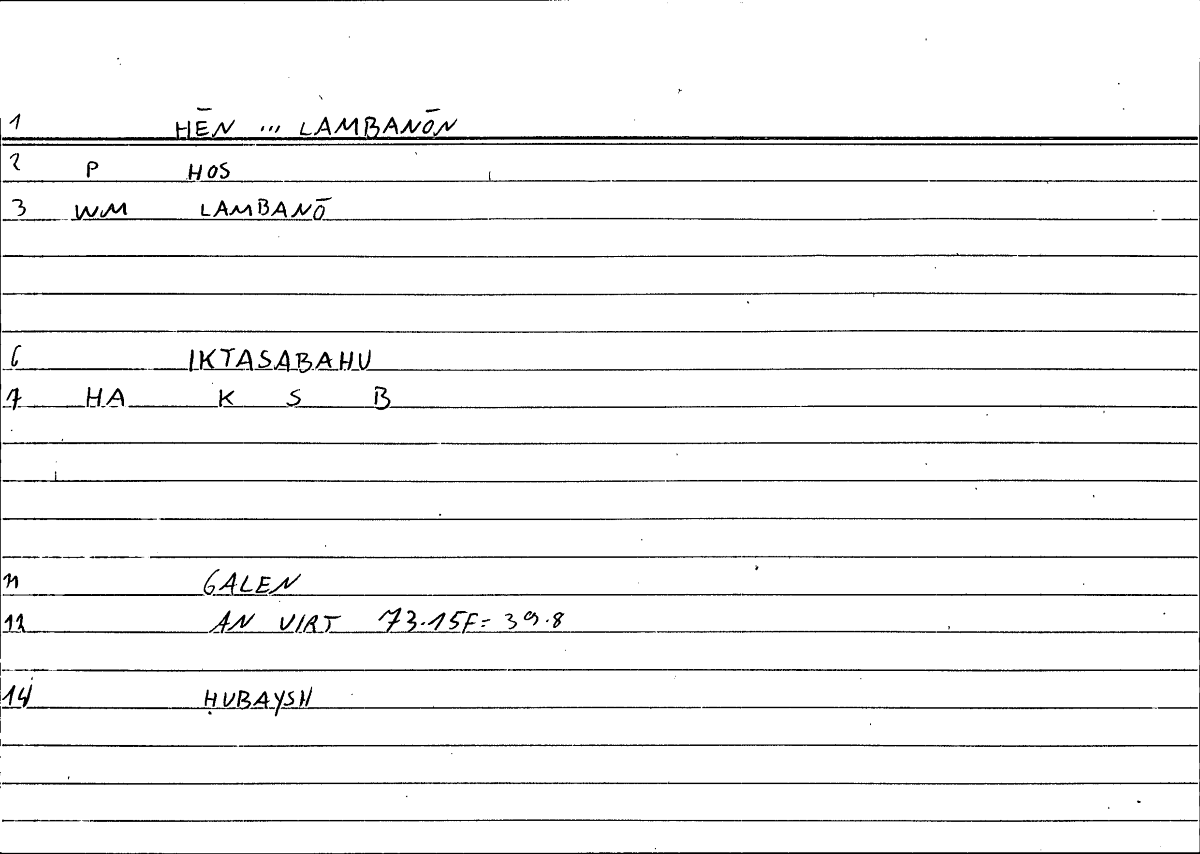 1 HĒN ... LAMBANŌN
2 P HOS
3 WM LAMBANŌ
6 IKTASABAHU
7 HA K S B
11 GALEN
12 AN VIRT 73.15F= 39.8
14 ḤUBAYSH